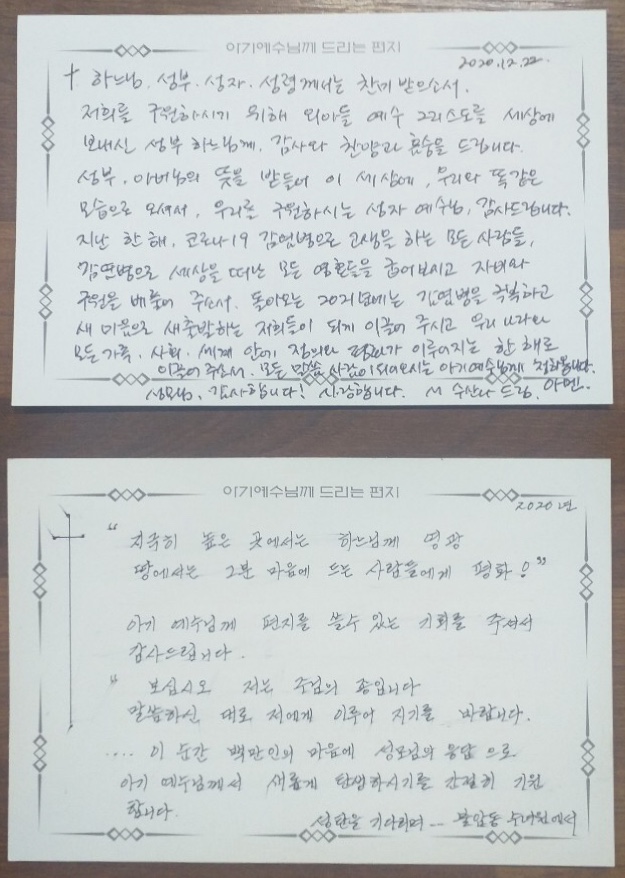 아기예수님께 드리는 편지
2020.12.22.
하느님. 성부. 성자. 성령께서는 찬미 받으소서.
저희를 구원하시기 위해 외아들 예수 그리스도를 세상에
보내신 성부 하느님께. 감사와 찬양과 흠숭을 드립니다.
성부. 아버님의 뜻을 받들어 이 세상에, 우리와 똑같은
모습으로 오셔서, 우리를 구원하시는 성자 예수님, 감사드립니다.
지난 한 해. 코로나19 감염병으로 고생을 하는 모든 사람들,
감염병으로 세상을 떠난 모든 영혼들을 굽어보시고 자비와
구원을 베풀어 주소서. 돌아오는 2021년에는 감염병을 극복하고
새 마음으로 새출발하는 저희들이 되게 이끌어 주시고 우리 나라와
모든 가족. 사회. 세계 안에 정의와 평화가 이루어지는 한 해로
이끌어 주소서. 모든 말씀 사람이 되어오시는 아기예수님께 청하옵니다.
성모님. 감사합니다! 사랑합니다. 수산나 드림. 아멘.
아기예수님께 드리는 편지
2020년
“ 지극히 높은 곳에서는 하느님께 영광
땅에서는 그분 마음에 드는 사람들에게 평화! ”
아기 예수님께 편지를 쓸수 있는 기회를 주셔서
감사드립니다.
“ 보십시오 저는 주님의 종입니다
말씀하신 대로 저에게 이루어 지기를 바랍니다.
.... 이 순간 백만인의 마음에 성모님의 응답 으로
아기 예수님께서 새롭게 탄생하시기를 간절히 기원
합니다.
성탄을 기다리며 ... 불암동 수녀원에서